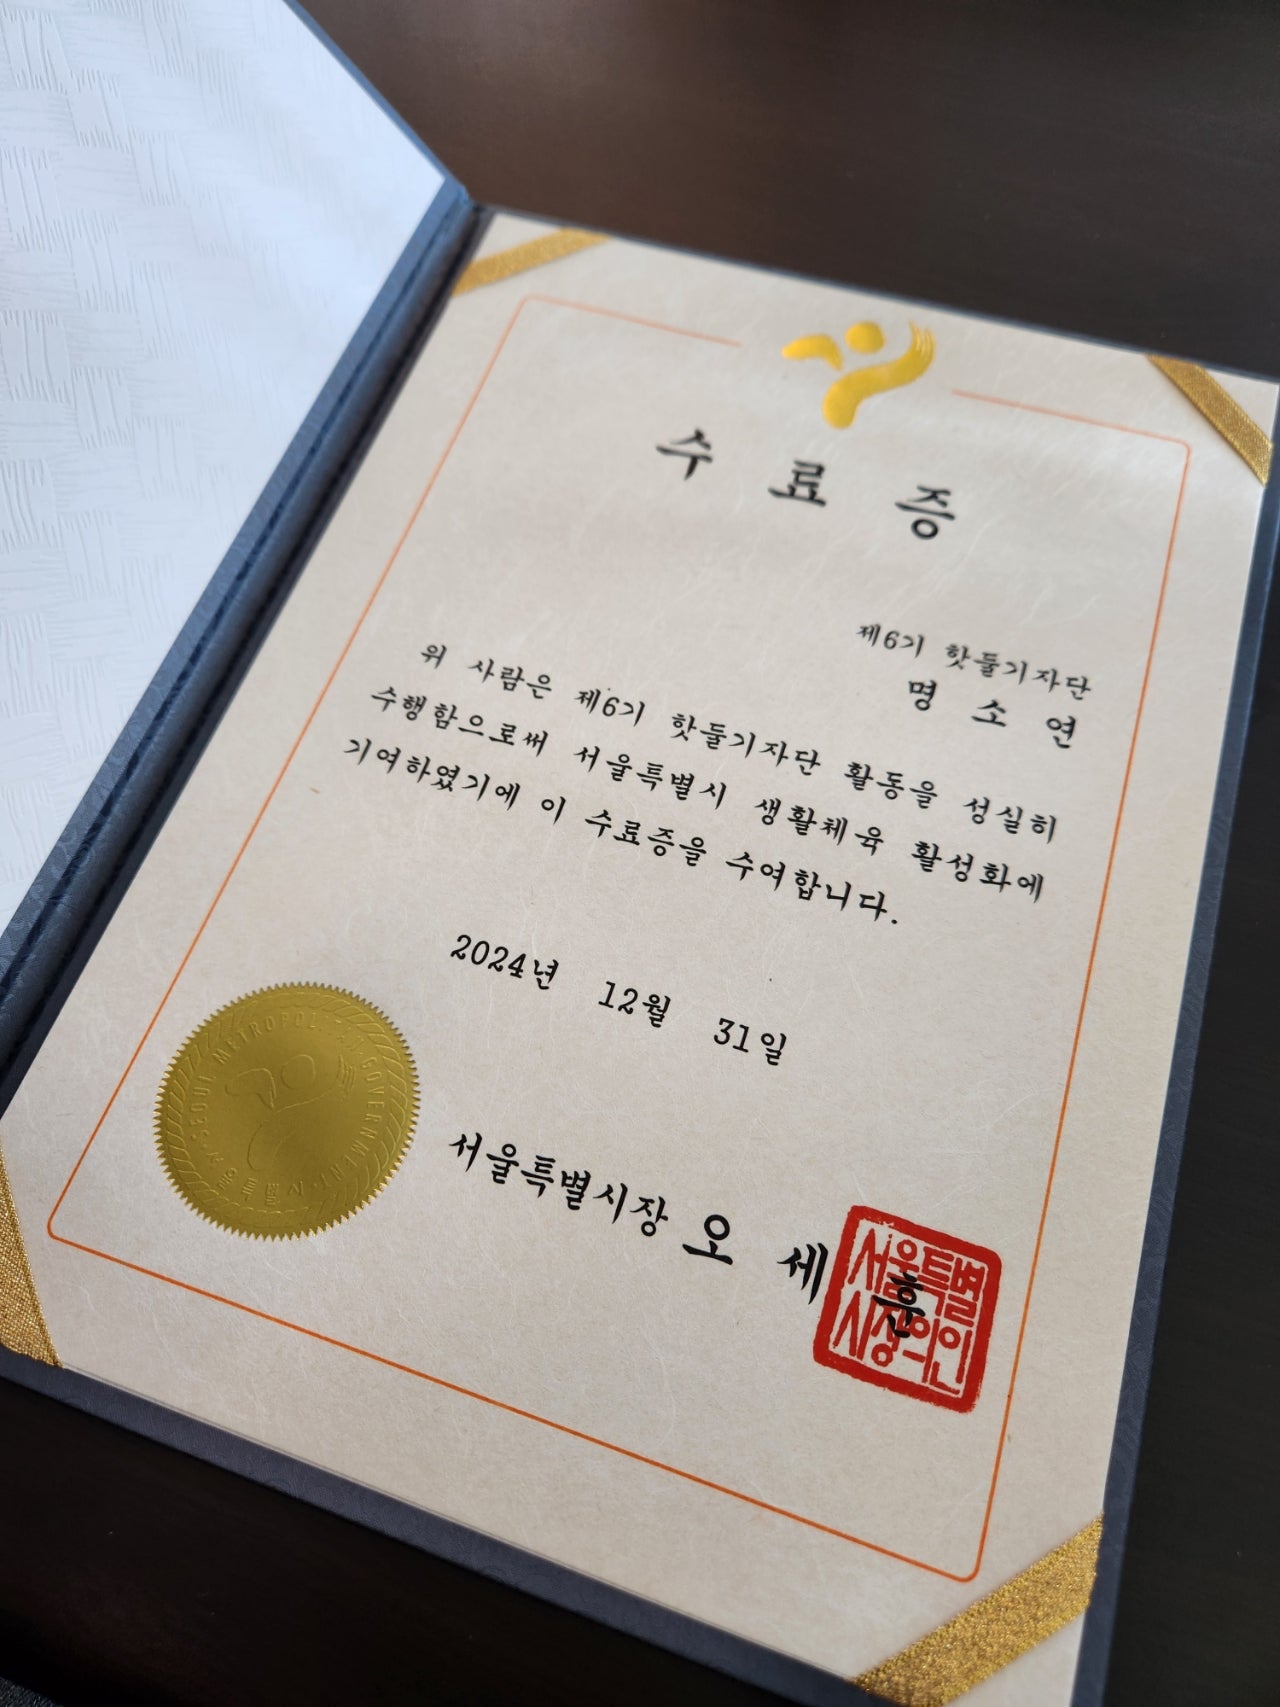 수 료 증
제6기 핫둘기자단
명 소 연
위 사람은 제6기 핫둘기자단 활동을 성실히
수행함으로써 서울특별시 생활체육 활성화에
기여하였기에 이 수료증을 수여합니다.
2024년 12월 31일
SEOUL METROPOLITAN GOVERNMENT
서울특별시
서울특별시장 오 세 훈
서울특별
시장의인